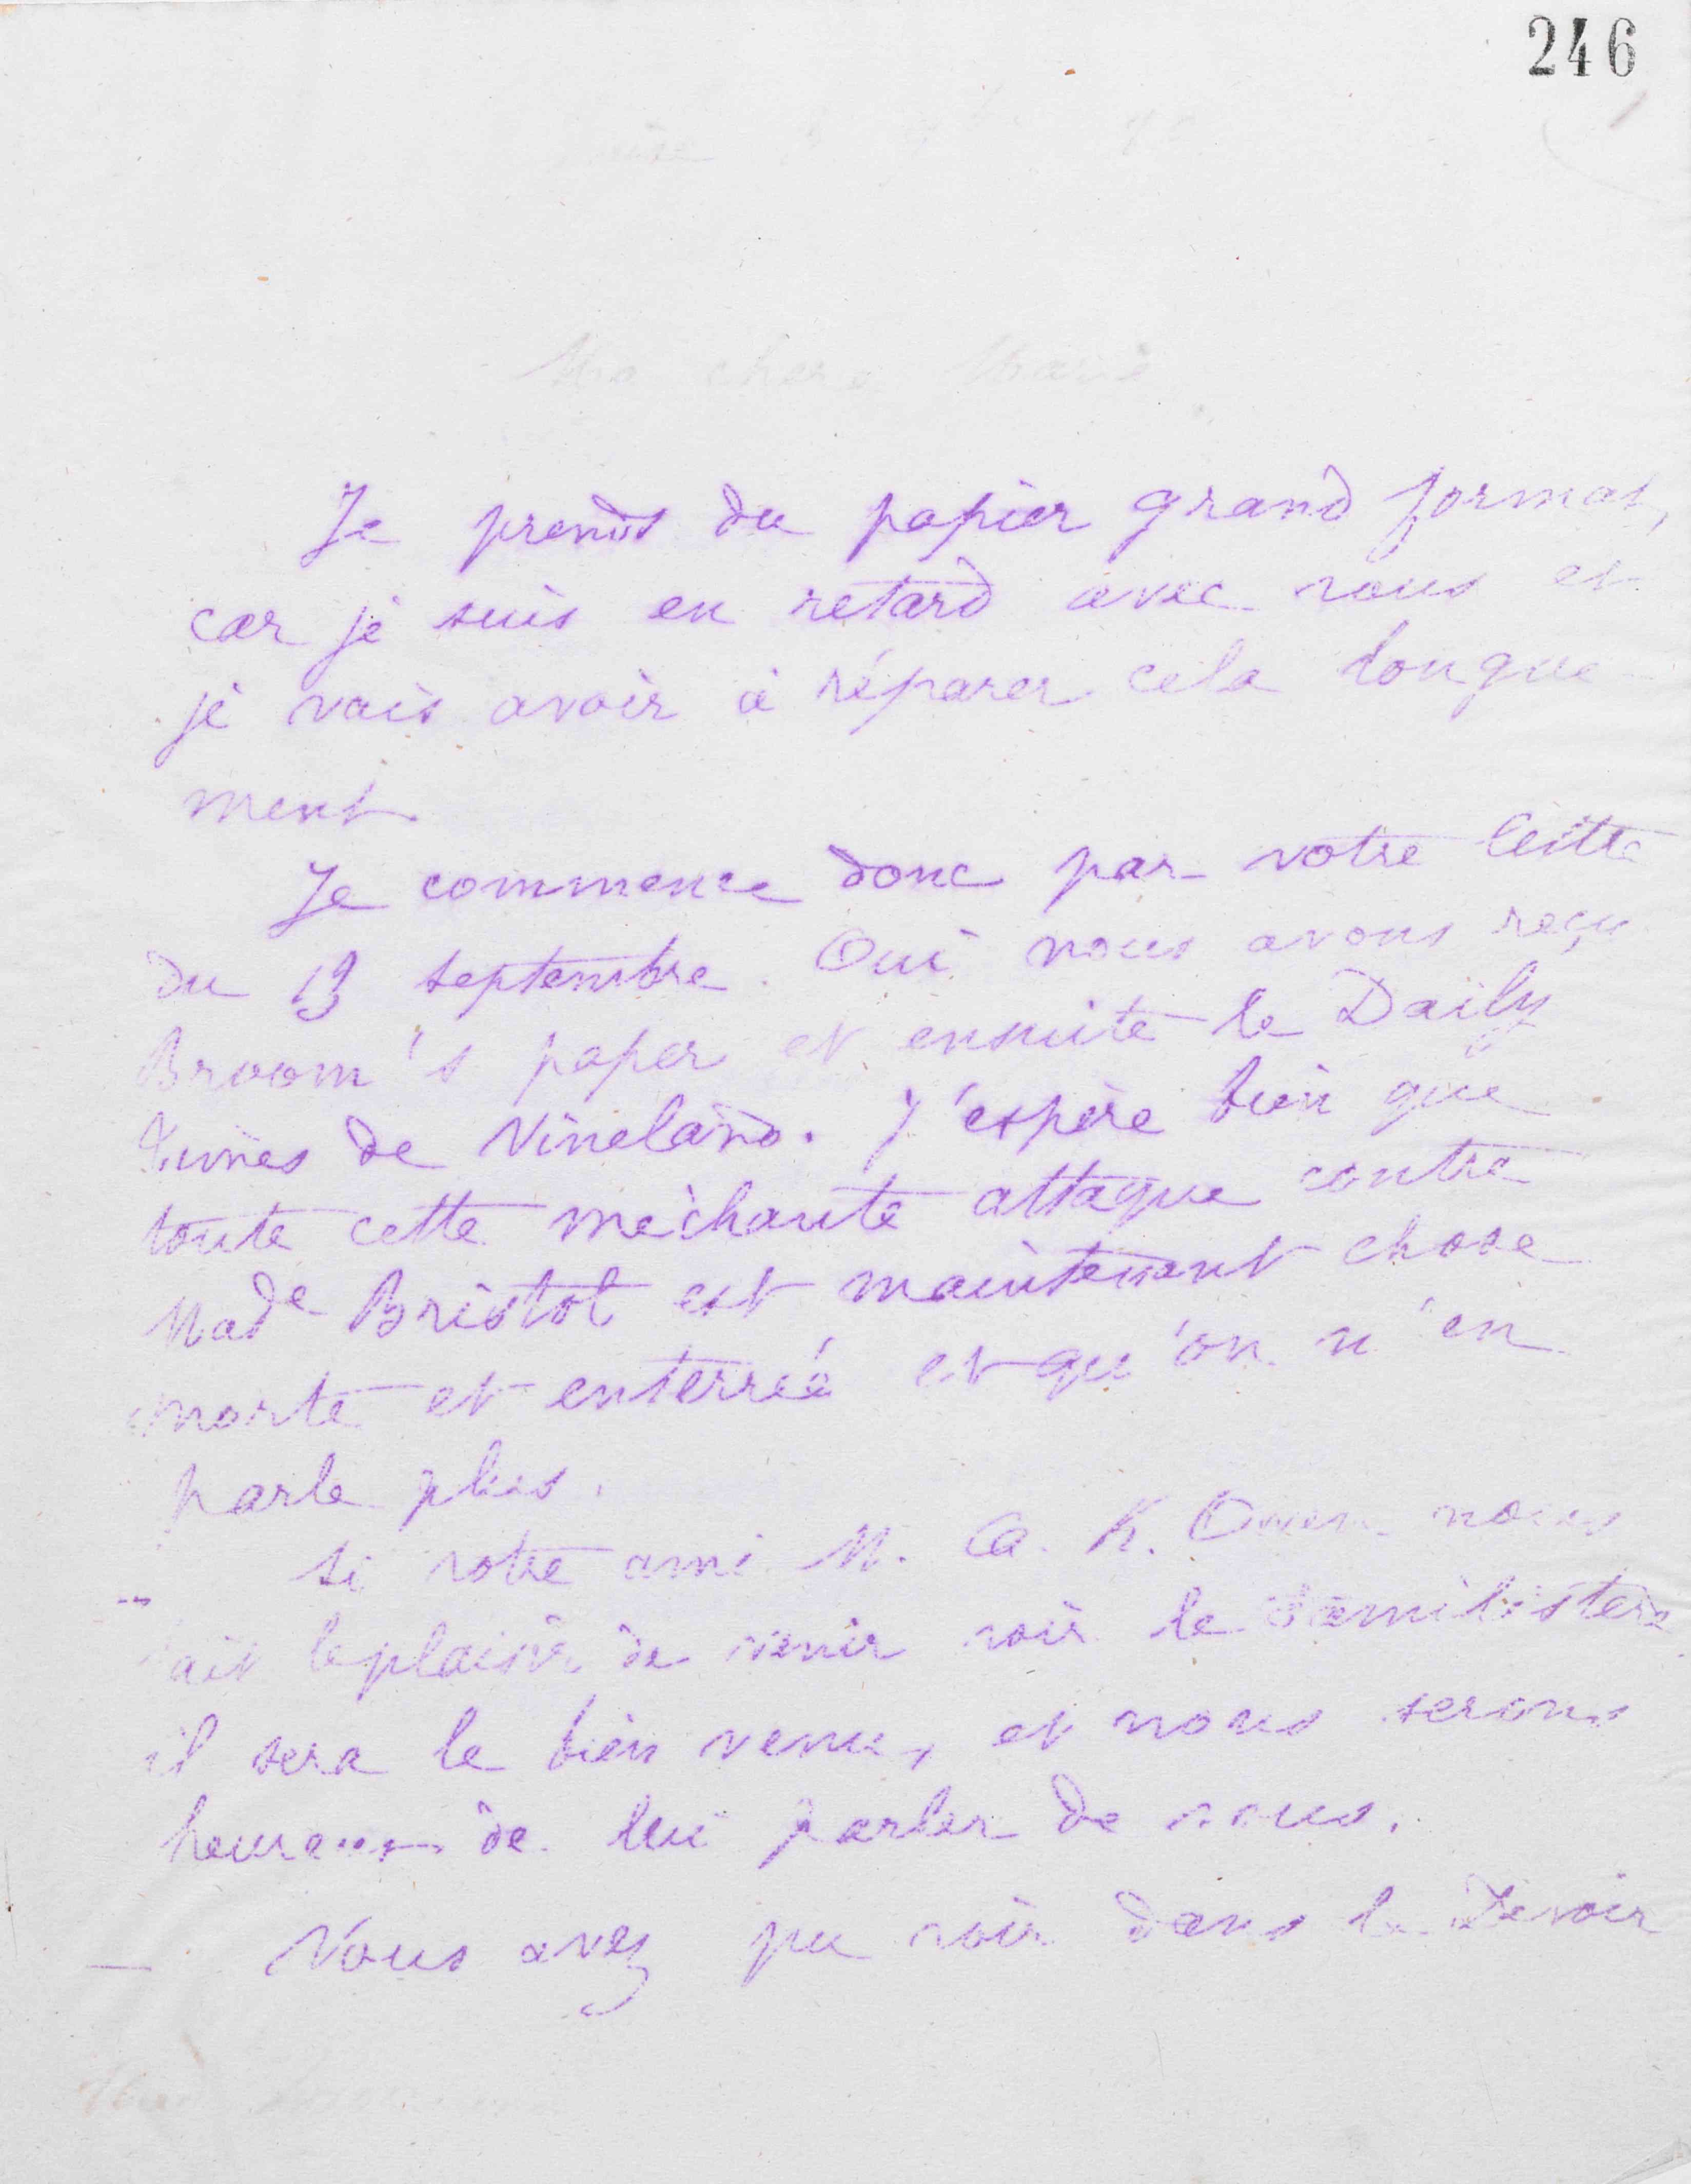 246
Ma chère Marie
Je prends du papier grand format,
car je suis en retard avec vous et
je vais avoir à réparer cela longue-
ment.
Je commence donc par votre lettre
du 19 septembre. Oui nous avons reçu
Broom's paper et ensuite le Daily
Times de Vineland. J'espère bien que
toute cette méchante attaque contre
Made Bristol est maintenant chose
morte et enterrée et qu'on n'en
parle plus.
Si votre ami M. A. K. Owen nous
fait le plaisir de venir voir le Familistère
il sera le bien venu, et nous serons
heureux de lui parler de vous.
— Vous avez pu voir dans le Devoir